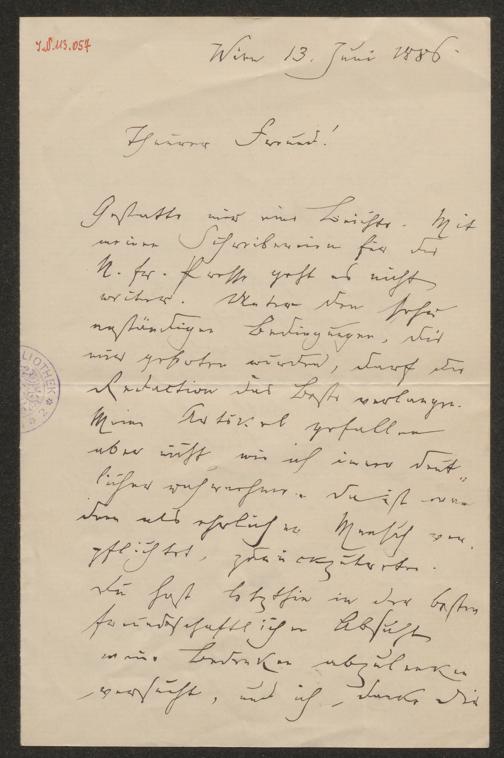 I.N. 113.057
Wien 13. Juni 1886.
Theurer Freund!
Gestatte mir eine Beichte. Mit
meiner Schreiberei für die
N. fr. Presse geht es nicht
weiter. Unter den sehr
anständigen Bedingungen, die
mir geboten wurden, darf die
Redaction das Beste verlangen.
Meine Artikel gefallen
aber nicht, wie ich immer deut-
licher wahrnehme. Da ist man
denn als ehrlicher Mensch ver-
pflichtet, zurückzutreten.
Du hast letzthin in der besten
freundschaftlichen Absicht
meine Bedenken abzulenken
versucht, und ich danke Dir